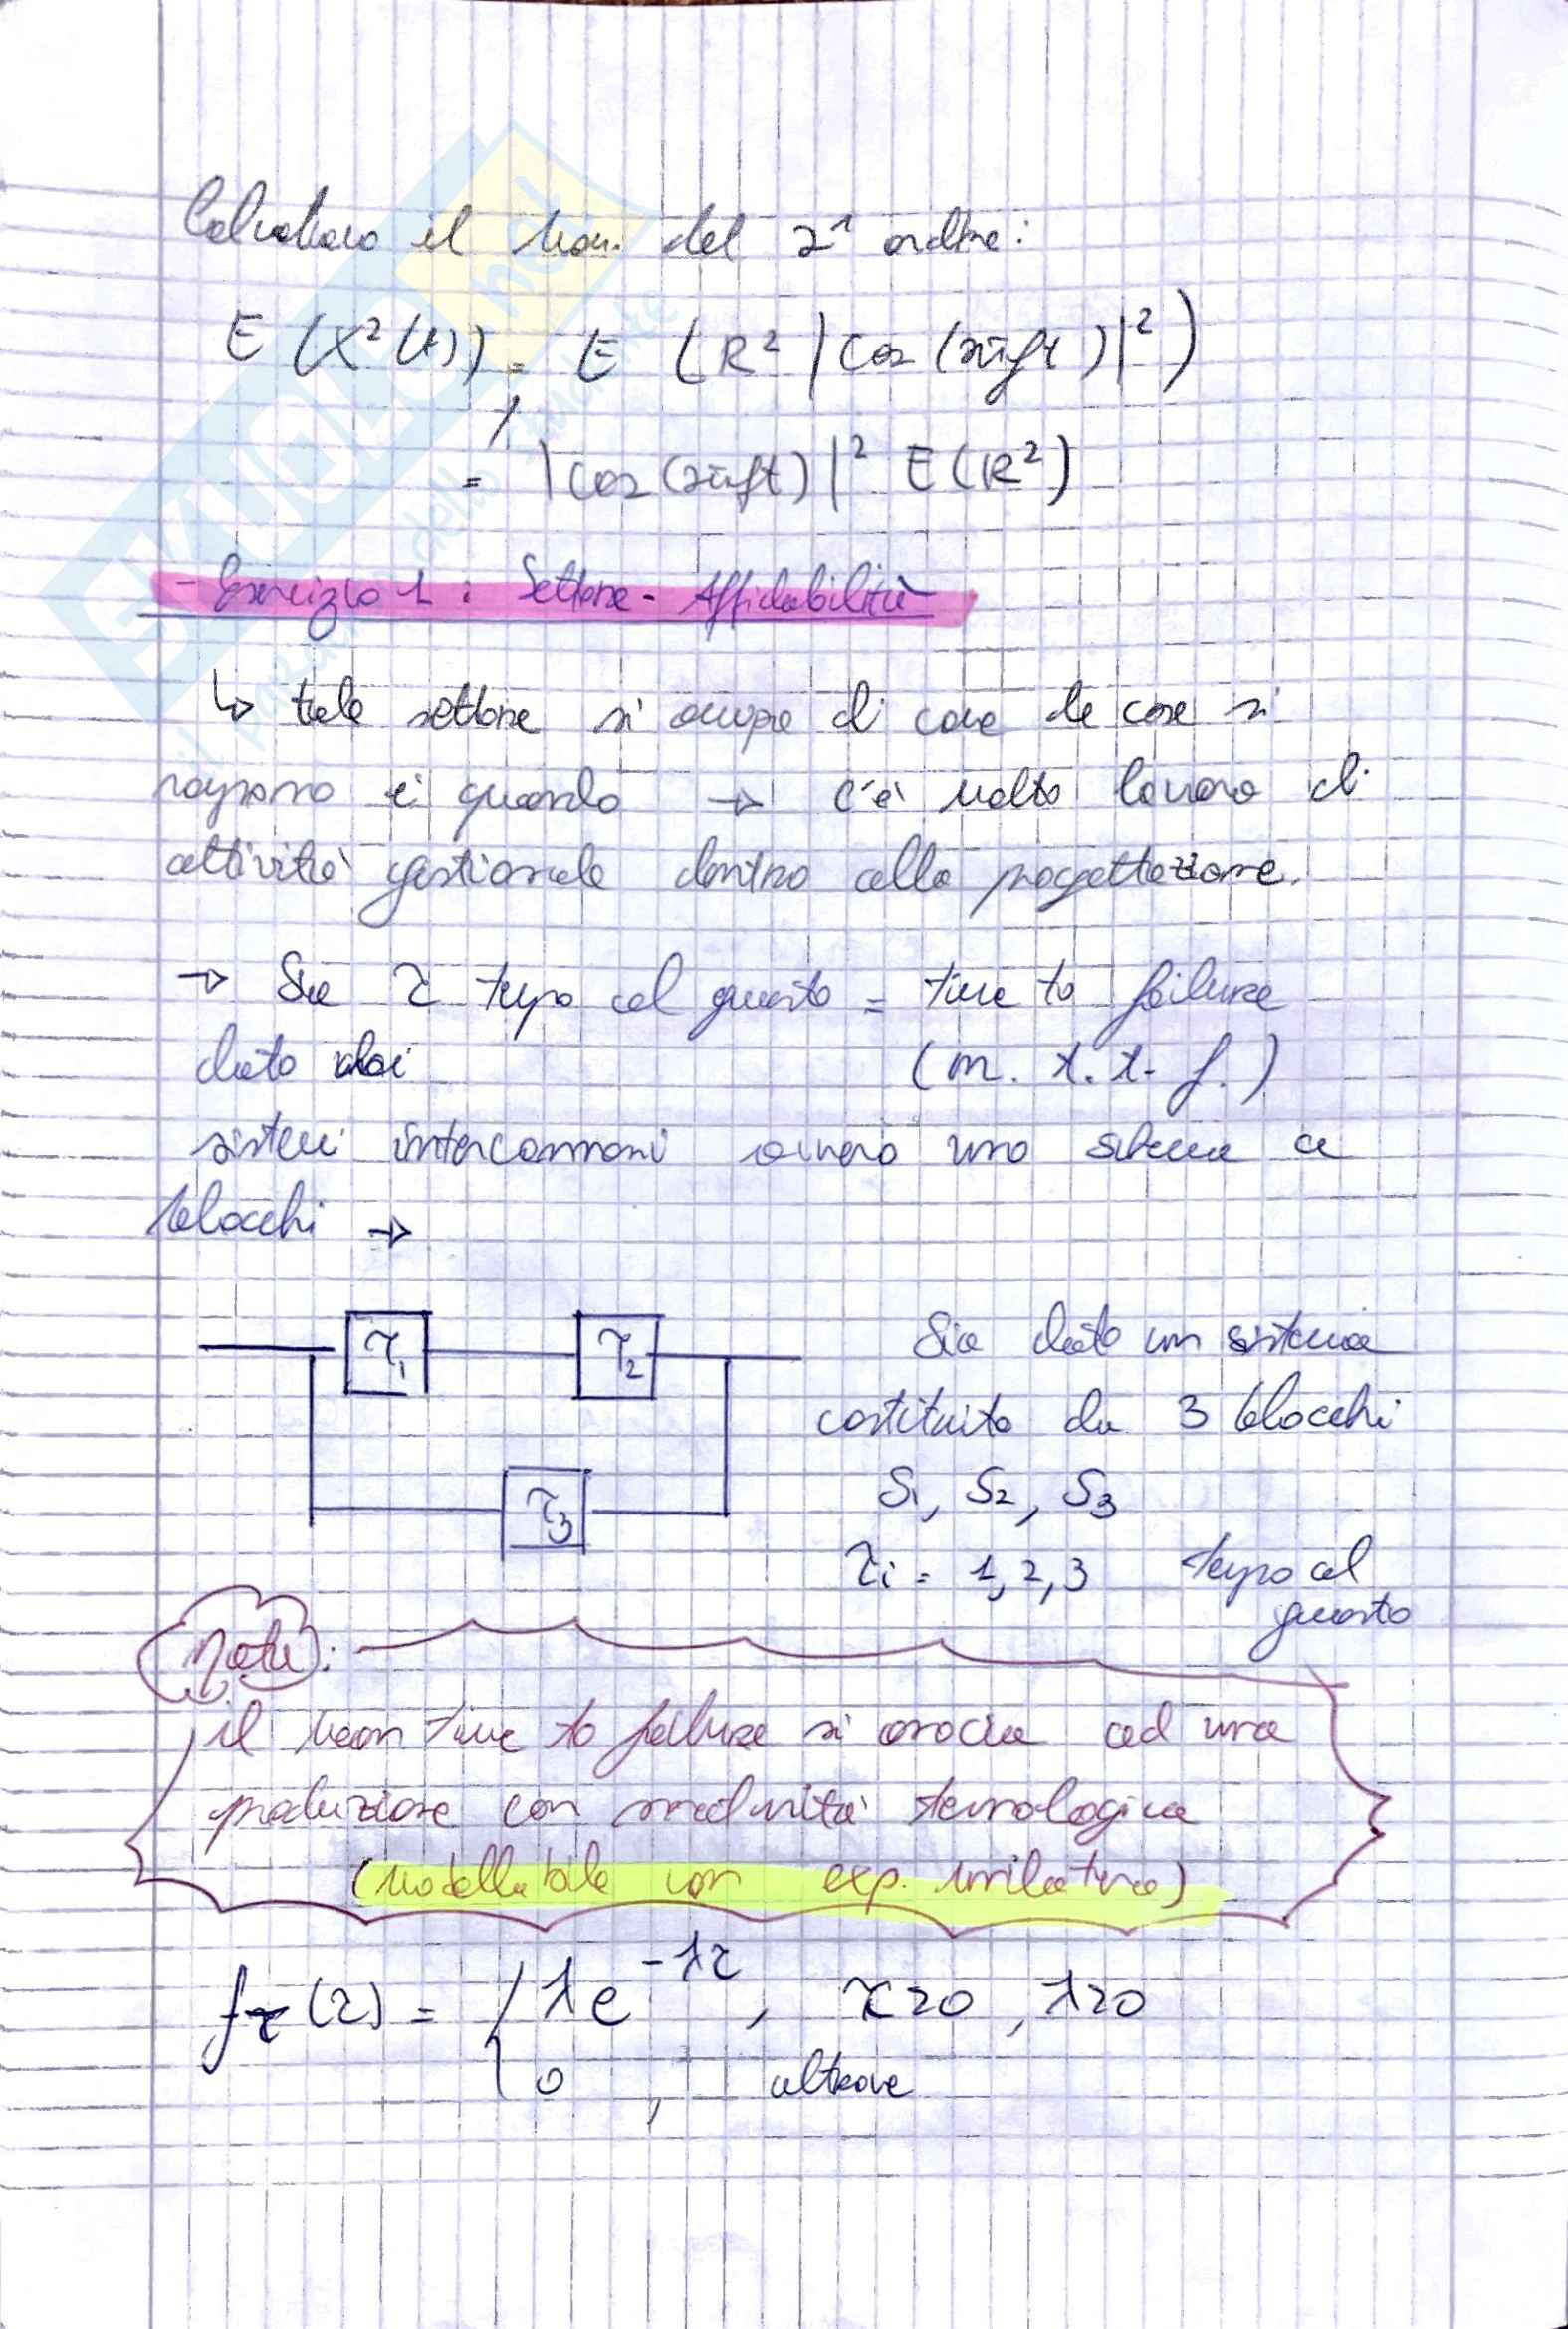 Calcoliamo il mom. del 2° ordine:
E (X²(t)) = E (R² |cos(2πft)|²)
= |cos(2πft)|² E(R²)
- Esercizio 1 : Settore - Affidabilità
↳ tale settore si occupa di come le cose si
rompono e quando → c'è molto lavoro di
attività gestionale dentro alla progettazione.
→ Sia τ tempo al guasto = time to failure
dato dai (m. t. t. f.)
sistemi interconnessi ovvero uno schema a
blocchi →
τ₁ τ₂ Sia dato un sistema
costituito da 3 blocchi
τ₃ S₁, S₂, S₃
τi = 1,2,3 tempo al
guasto
Nota:
il mean time to failure si associa ad una
produzione con maturità tecnologica
(modellabile con exp. unilatera)
fτ(τ) = { λe^-λτ , τ≥0 , λ≥0
0 , altrove